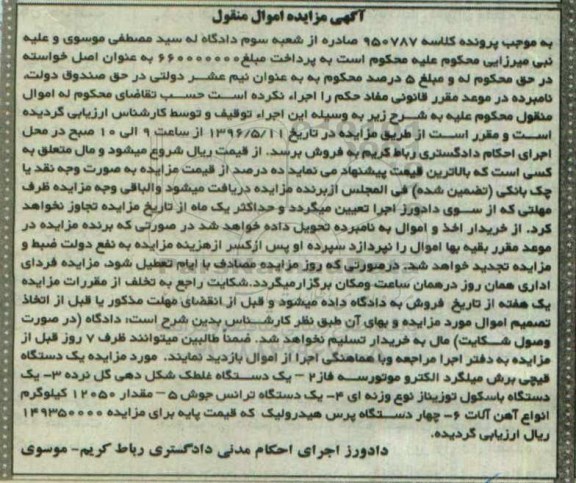 آگهی مزایده اموال منقول
به موجب پرونده کلاسه ۹۵۰۷۸۷ صادره از شعبه سوم دادگاه له سید مصطفی موسوی و علیه
نبی میرزایی محکوم علیه محکوم است به پرداخت مبلغ ۶۶۰۰۰۰۰۰۰ به عنوان اصل خواسته
در حق محکوم له و مبلغ ۵ درصد محکوم به به عنوان نیم عشر دولتی در حق صندوق دولت.
نامبرده در موعد مقرر قانونی مفاد حکم را اجراء نکرده است حسب تقاضای محکوم له اموال
منقول محکوم علیه به شرح زیر به وسیله این اجراء توقیف و توسط کارشناس ارزیابی گردیده
است و مقرر است از طریق مزایده در تاریخ ۱۳۹۶/۵/۱۱ از ساعت ۹ الی ۱۰ صبح در محل
اجرای احکام دادگستری رباط کریم به فروش برسد. از قیمت ریال شروع میشود و مال متعلق به
کسی است که بالاترین قیمت پیشنهاد می نماید ده درصد از قیمت مزایده به صورت وجه نقد یا
چک بانکی (تضمین شده) فی المجلس ازبرنده مزایده دریافت میشود والباقی وجه مزایده ظرف
مهلتی که از سوی دادورز اجرا تعیین میگردد و حداکثر یک ماه از تاریخ مزایده تجاوز نخواهد
کرد. از خریدار اخذ و اموال به نامبرده تحویل داده خواهد شد در صورتی که برنده مزایده در
موعد مقرر بقیه بها اموال را نپردازد سپرده او پس ازکسر ازهزینه مزایده به نفع دولت ضبط و
مزایده تجدید خواهد شد. درصورتی که روز مزایده مصادف با ایام تعطیل شود. مزایده فردای
اداری همان روز درهمان ساعت ومکان برگزارمیگردد.شکایت راجع به تخلف از مقررات مزایده
یک هفته از تاریخ فروش به دادگاه داده میشود و قبل از انقضای مهلت مذکور یا قبل از اتخاذ
تصمیم اموال مورد مزایده و بهای آن طبق نظر کارشناس بدین شرح است: دادگاه (در صورت
وصول شکایت) مال به خریدار تسلیم نخواهد شد. ضمناً طالبین میتوانند ظرف ۷ روز قبل از
مزایده به دفتر اجرا مراجعه وبا هماهنگی اجرا از اموال بازدید نمایند. مورد مزایده یک دستگاه
قیچی برش میلگرد الکترو موتورسه فاز۲ – یک دستگاه غلطک شکل دهی گل نرده ۳- یک
دستگاه باسکول توزیناز نوع وزنه ای ۴- یک دستگاه ترانس جوش ۵ – مقدار ۱۲۰۵۰ کیلوگرم
انواع آهن آلات ۶- چهار دستگاه پرس هیدرولیک که قیمت پایه برای مزایده ۱۴۹۳۵۰۰۰۰
ریال ارزیابی گردیده.
دادورز اجرای احکام مدنی دادگستری رباط کریم- موسوی